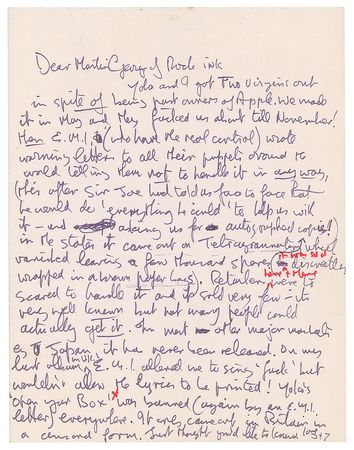 Dear Martin (George) of Rock ink
Yoko and I got Two Virgins out
in spite of being part owners of Apple. We made
it in May and they fucked us about till November!
Then E.M.I (who have the real control) wrote
warning letters to all their puppets around the
world telling them not to handle it in any way.
(this after Sir Joe had told us face to face that
he would do 'everything he could' to help us with
it – and asking us for autographed copies!!)
In the states it came out on Tetragrammaton which
vanished leaving a few thousand spores discreetly
it was sold
wrapped in a brown paper bags). Retailers were to
here + there
scared to handle it and it sold very few – its
very well known but not many people could
actually get it. In most other major markets
e.g Japan, it has never been released. On my
last album in U.K. E.M.I. allowed me to sing 'fuck' but
wouldn't allow the lyrics to be printed! Yoko's
'open your Box' was banned (again by an E.M.I.
letter) everywhere. It only came out in Britain in
a censored form. Just thought you'd like to know